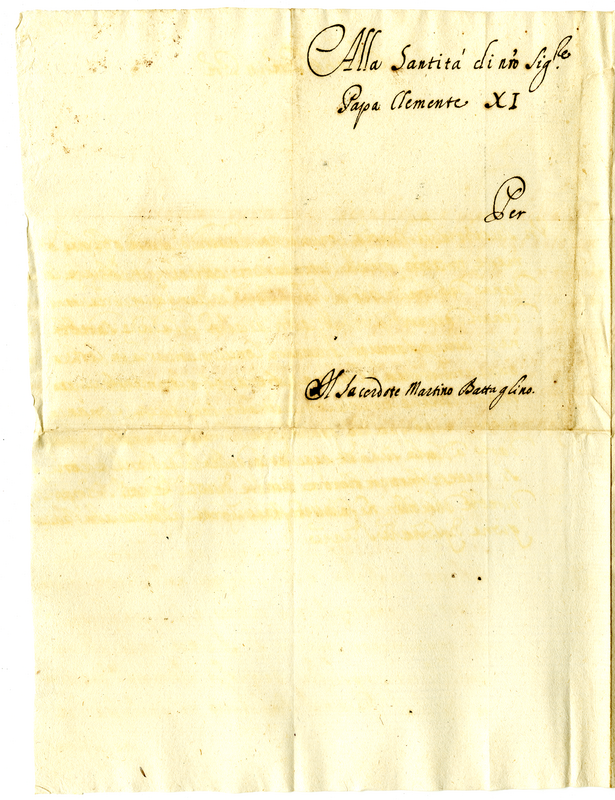 Alla Santità di nr̃o Sig.re
Papa Clemente XI
Per
Il Sacerdote Martino Battaglino.